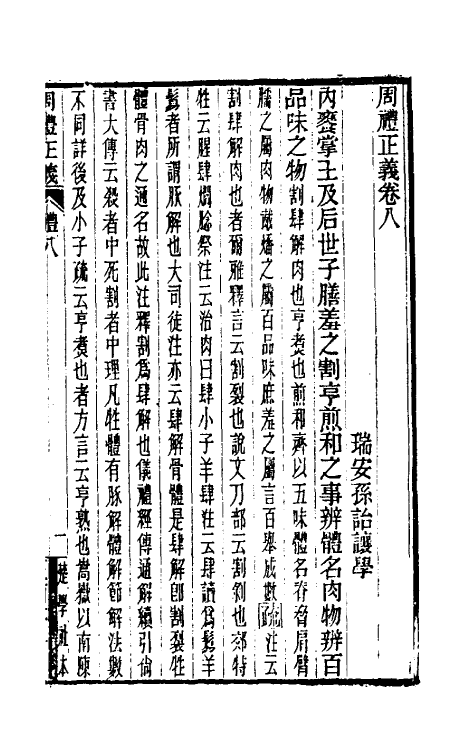 周禮正義卷八
瑞安孫詒讓學
內饔掌王及后世子膳羞之割亨煎和之事辨體名肉物辨百
品味之物割肆解肉也亨煮也煎和齊以五味體名脊脅肩臂
臑之屬肉物胾燔之屬百品味庶羞之屬言百舉成數疏注云
割肆解肉也者爾雅釋言云割裂也說文刀部云割剝也郊特
牲云腥肆爓腍祭注云治肉曰肆小子羊肆注云肆讀爲鬄羊
鬄者所謂豚解也大司徒注亦云肆解骨體是肆解卽割裂牲
體骨肉之通名故此注釋割爲肆解也儀禮經傳通解續引尙
書大傳云殺者中死割者中理凡牲體有豚解體解節解法數
不同詳後及小子疏云亨煮也者方言云亨熟也嵩嶽以南陳
周禮正義
禮八
一
楚學社本